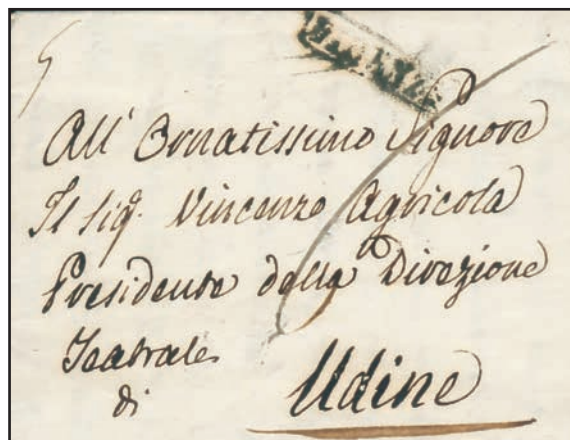 All' Ornatissimo Signore
Il Sig. Vincenzo Agricola
Presidente della Direzione
Teatrale
di
Udine